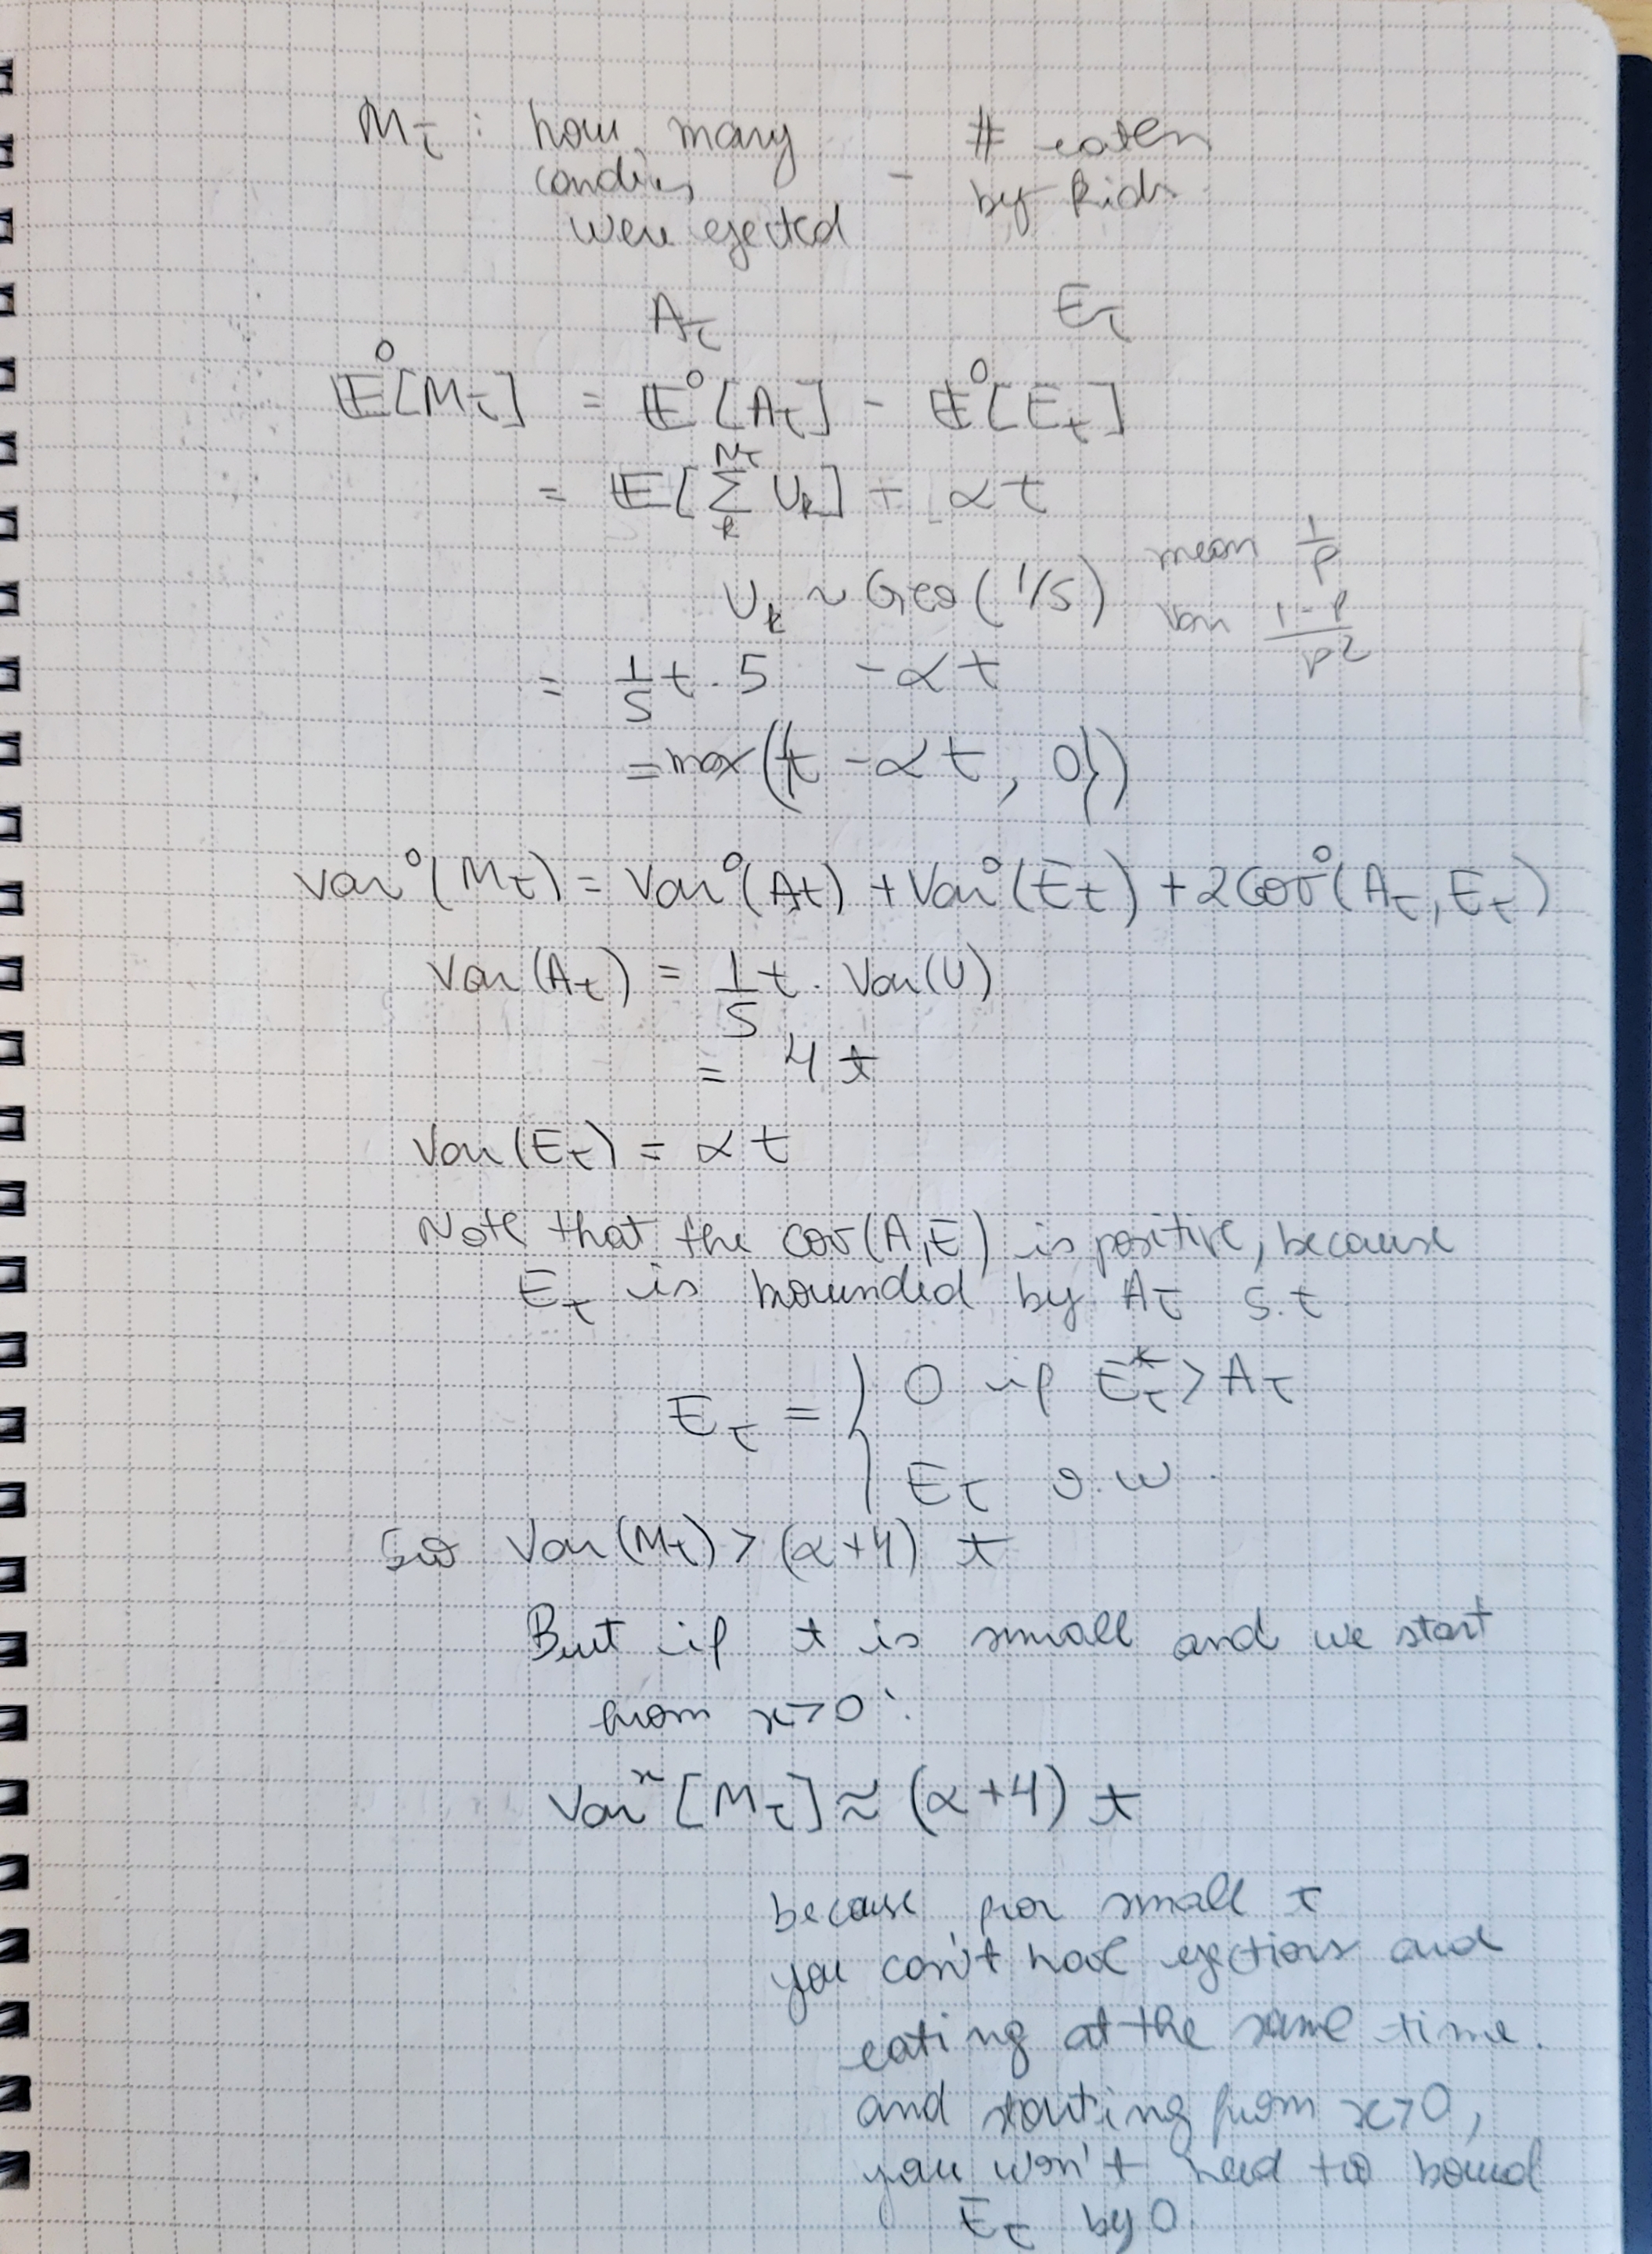 M_t : how many - # eaten
candies by kids
were ejected
A_t E_t
𝔼⁰[M_t] = 𝔼⁰[A_t] - 𝔼⁰[E_t]
= 𝔼[∑_k^{N_t} U_k] - αt
U_k ~ Geo(1/5) mean 1/p
var (1-p)/p²
= 1/5 t · 5 - αt
= max({t - αt, 0})
Var⁰(M_t) = Var⁰(A_t) + Var⁰(E_t) + 2Cov⁰(A_t, E_t)
Var(A_t) = 1/5 t · Var(U)
= 4t
Var(E_t) = αt
Note that the cov(A,E) is positive, because
E_t is bounded by A_t s.t
E_t = { 0 if E*_t > A_t
E_t o.w.
So Var(M_t) > (α+4) t
But if t is small and we start
from x>0:
Var^x[M_t] ≈ (α+4) t
because for small t
you can't have ejections and
eating at the same time.
and starting from x>0,
you won't need to bound
E_t by 0.